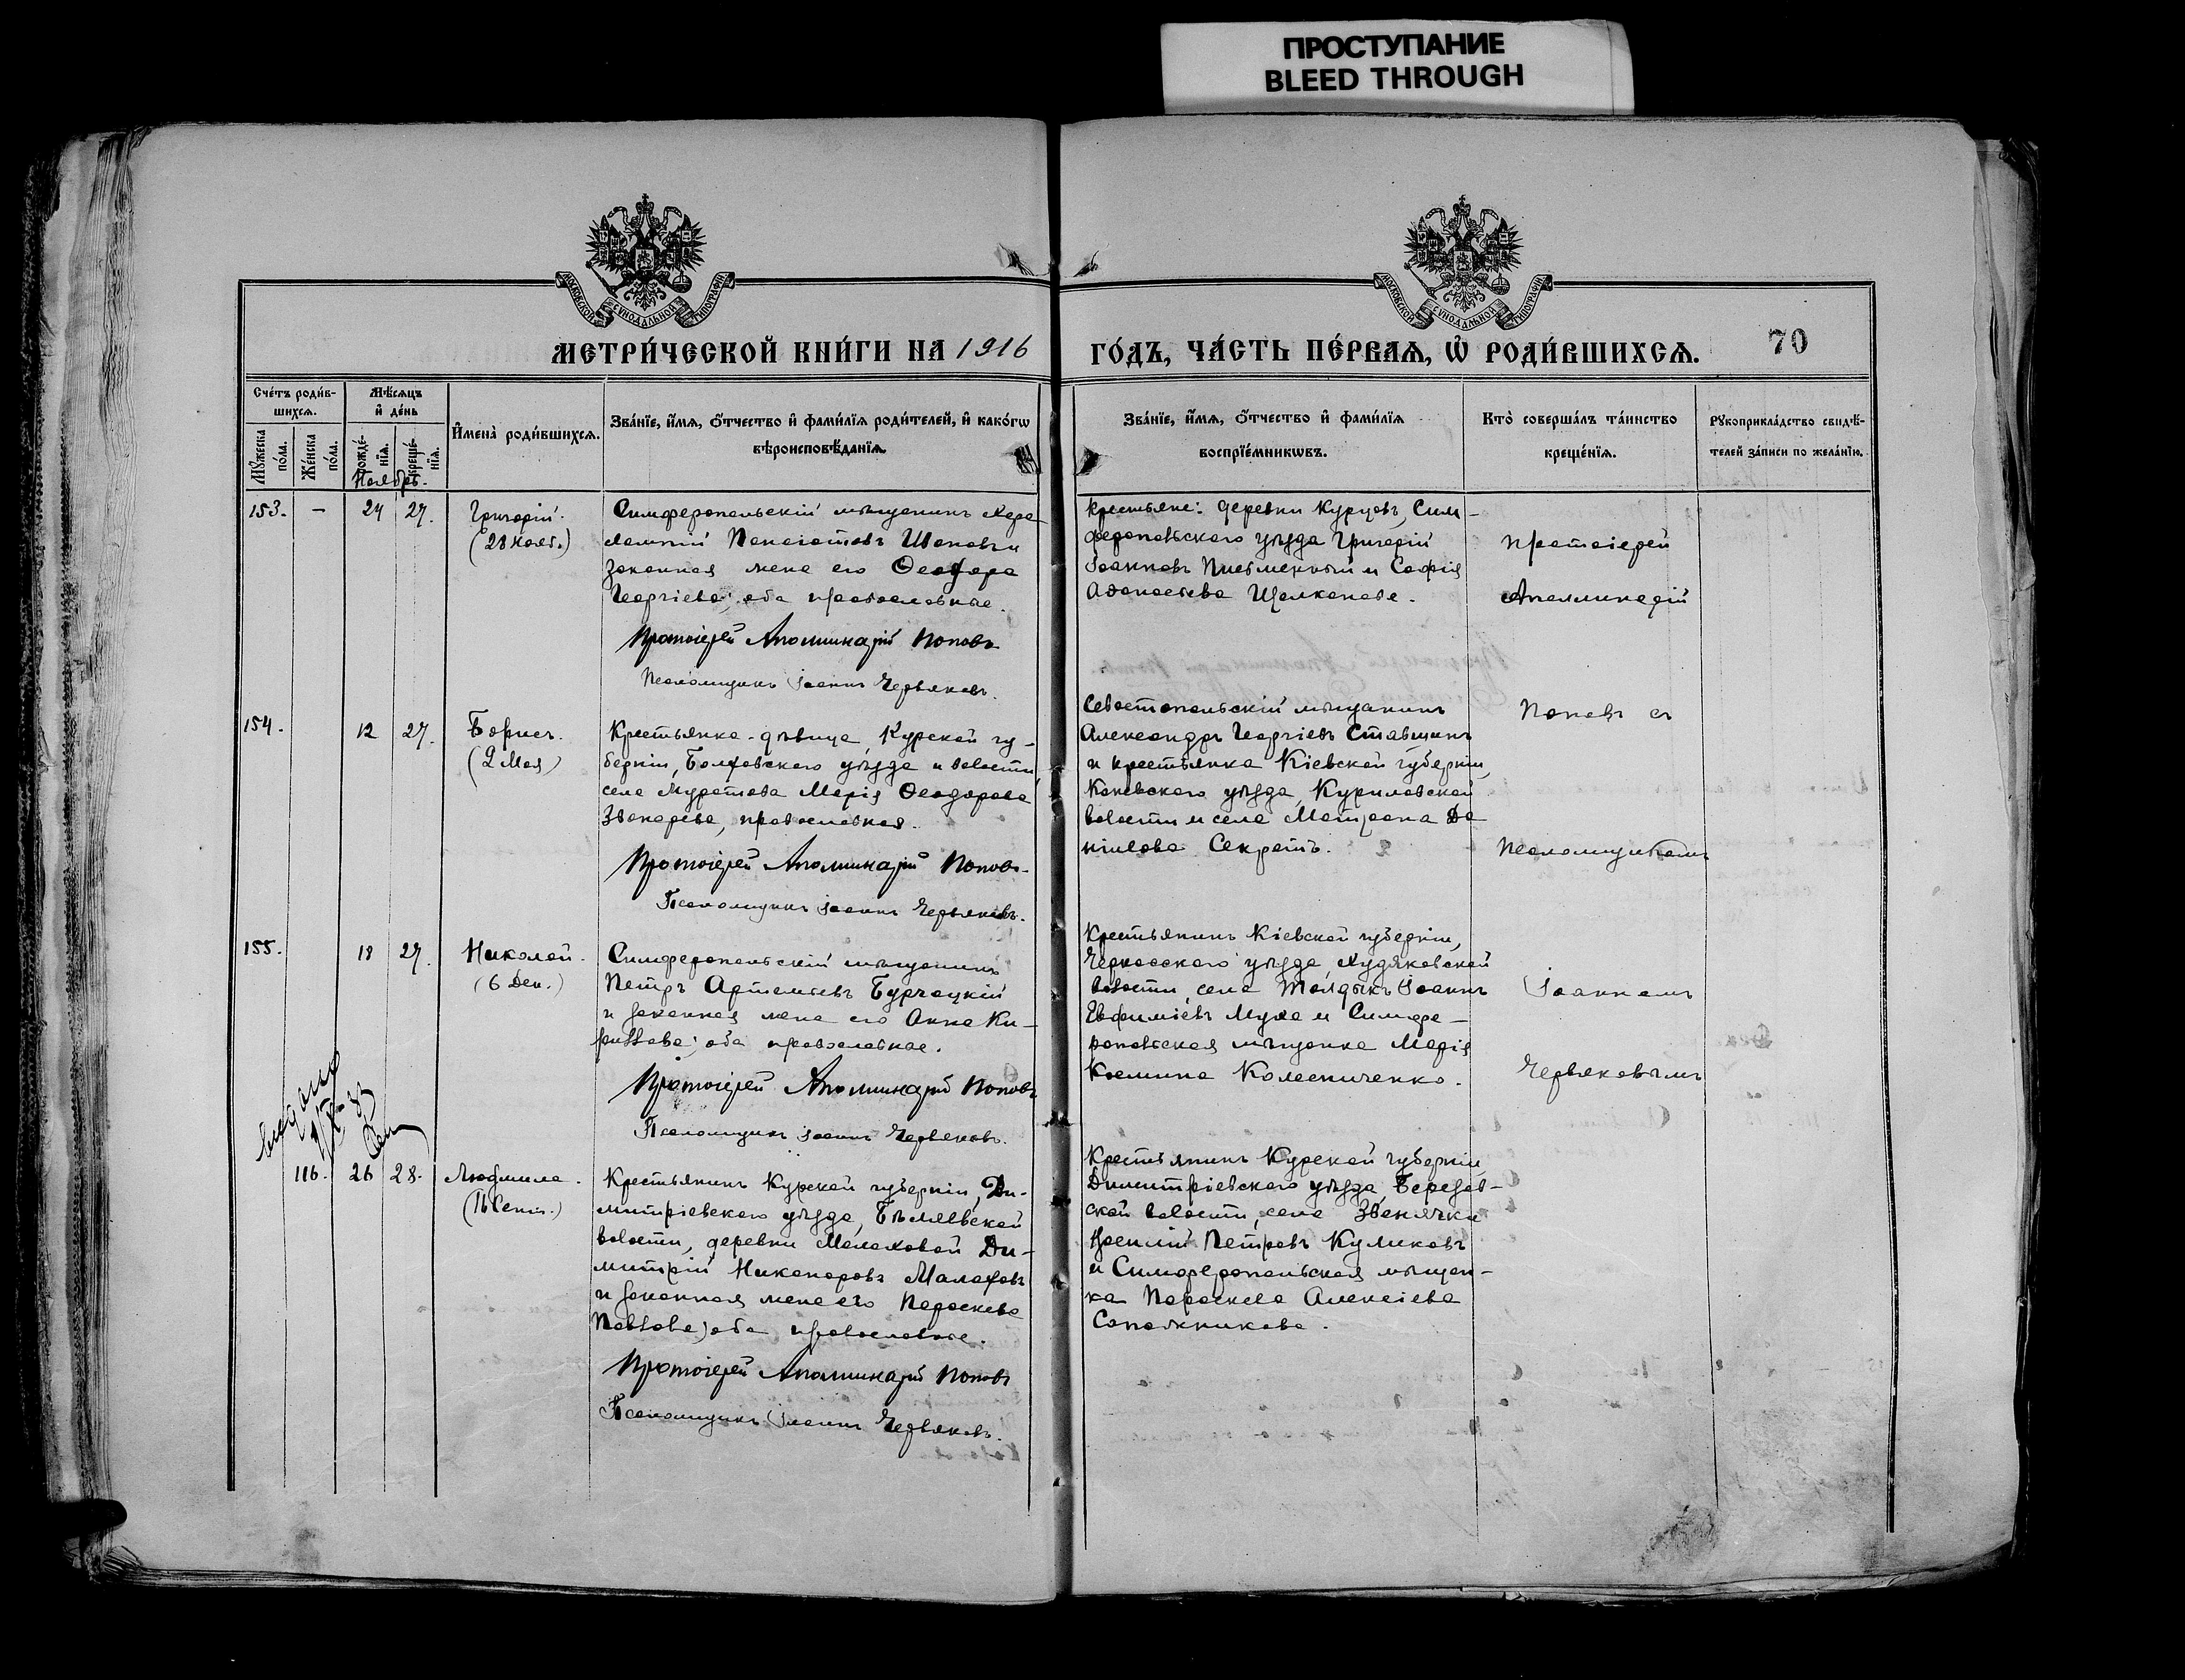 ПРОСТУПАНИЕ
BLEED THROUGH
МОСКОВСКОЙ СѴНОДАЛЬНОЙ ТИПОГРАФІИ
МОСКОВСКОЙ СѴНОДАЛЬНОЙ ТИПОГРАФІИ
МЕТРИ́ЧЕСКОЙ КНИ́ГИ НА 1916
ГО́ДЪ, ЧА́СТЬ ПЕ́РВАѦ, Ѡ҆ РОДИ́ВШИХСѦ.
70
Сче́тъ роди́в-
шихсѧ.
Мꙋ́жеска по́ла.
Же́нска по́ла.
Мѣ́сѧцъ
и҆ де́нь
рожде́-
нїѧ.
креще́-
нїѧ.
Ноябрь.
И҆мена̀ роди́вшихсѧ.
Зва́нїе, и҆́мѧ, ѻ҆́тчество и҆ фами́лїѧ роди́телей, и҆ како́гѡ
вѣроисповѣ́данїѧ.
Зва́нїе, и҆́мѧ, ѻ҆́тчество и҆ фами́лїѧ
воспрїе́мникѡвъ.
Кто̀ соверша́лъ та́инство
креще́нїѧ.
Рꙋкоприкла́дство свидѣ́-
телей за́писи по жела́нїю.
153. – 24 27.
Григорій.
(28 Нояб.)
Симферопольскій мѣщанинъ Хара
лампій Панаіотовъ Шоповъ и
законная жена его Ѳеодора
Георгіева; оба православные.
Протоіерей Аполлинарій Поповъ
Псаломщикъ Іоаннъ Червяковъ.
Крестьяне: деревни Курцовъ, Сим-
феропольскаго уѣзда Григорій
Іоанновъ Письменный и Софія
Аѳанасьева Щелканова.
Протоіерей
Аполлинарій
154. 12 27.
Борисъ.
(2 Мая)
Крестьянка-дѣвица, Курской гу-
берніи, Болховского уѣзда и волости
села Муратова Марія Ѳеодорова
Звонарева, православная.
Протоіерей Аполлинарій Поповъ
Псаломщикъ Іоаннъ Червяковъ.
Севастопольскій мѣщанинъ
Александръ Георгіевъ Ставшинъ
и крестьянка Кіевской губерніи,
Каневскаго уѣзда, Куриловской
волости и села Матрона Да
ніилова Секретъ.
Поповъ съ
Псаломщикомъ
155. 18 27.
Николай.
(6 Дек.)
Симферопольскій мѣщанинъ
Петръ Артемьевъ Бурчацкій
и законная жена его Анна Ки-
риллова; оба православные.
Протоіерей Аполлинарій Поповъ
Псаломщикъ Іоаннъ Червяковъ.
Крестьянинъ Кіевской губерніи,
Черкасскаго уѣзда, Худяковской
волости, села Талдыкъ Іоаннъ
Евфиміевъ Муха и Симфе-
ропольская мѣщанка Марія
Косьмина Колесниченко.
Іоанномъ
Червяковымъ
выдано
116. 26 28.
Людмила.
(16 Сент.)
Крестьянинъ Курской губерніи, Ди-
митріевскаго уѣзда, Бѣляевской
волости, деревни Малаховой Ди-
митрій Никаноровъ Малаховъ
и законная жена его Параскева
Павлова; оба православные.
Протоіерей Аполлинарій Поповъ
Псаломщикъ Іоаннъ Червяковъ.
Крестьянинъ Курской губерніи,
Димитріевскаго уѣзда, Березов-
ской волости, села Звенячки
Василій Петровъ Куликовъ
и Симферопольская мѣщан-
ка Параскева Алексіева
Сапожникова.